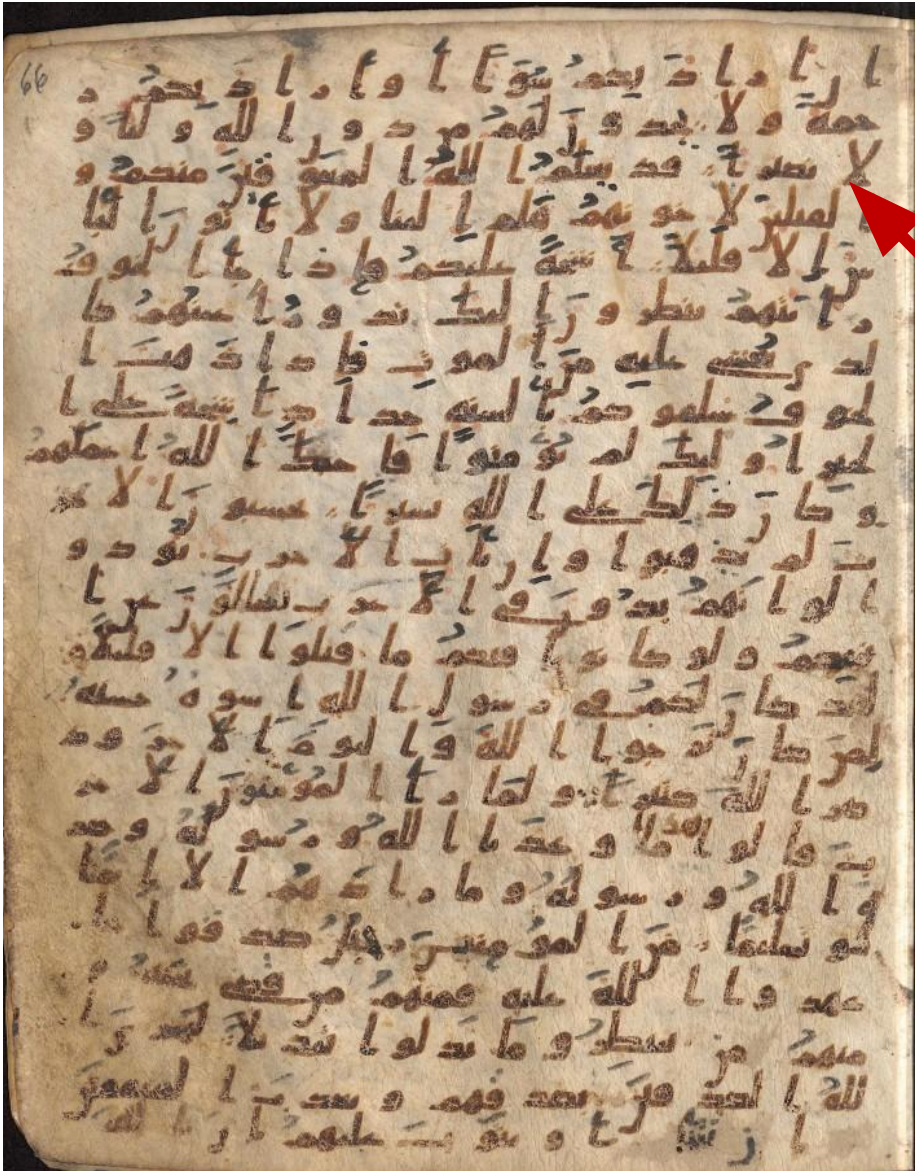 66
ان اراد بكم سوا او اراد بكم ر
حمة ولا يجدون لهم من دون الله وليا و
لا نصيرا قد يعلم الله المعوقين منكم و
القيلين لاخونهم هلم الينا ولا ياتون البا
س الا قليلا اشحة عليكم فاذا جا الخوف
رايتهم ينظرون اليك تدور اعينهم كا
لذي يغشى عليه من الموت فاذا ذهب ا
لخوف سلقوكم بالسنة حداد اشحة على ا
لخير اوليك لم يومنوا فاحبط الله اعملهم
وكان ذلك على الله يسيرا يحسبون الاحز
ب لم يذهبوا وان يات الاحزب يودو
ا لو انهم بدون في الاعرب يسالون عن ا
نبيكم ولو كانوا فيكم ما قتلوا الا قليلا
لقد كان لكم في رسول الله اسوة حسنة
لمن كان يرجوا الله واليوم الاخر وذ
كر الله كثيرا ولما را المومنون الاحز
ب قالوا هذا ما وعدنا الله ورسوله وصد
ق الله ورسوله وما زادهم الا ايمنا
وتسليما من المومنين رجال صدقوا ما
عهدوا الله عليه فمنهم من قضى نحبه و
منهم من ينتظر وما بدلوا تبديلا ليجزي ا
لله الصدقين بصدقهم ويعذب المنفقين
ان شا او يتوب عليهم ان الله